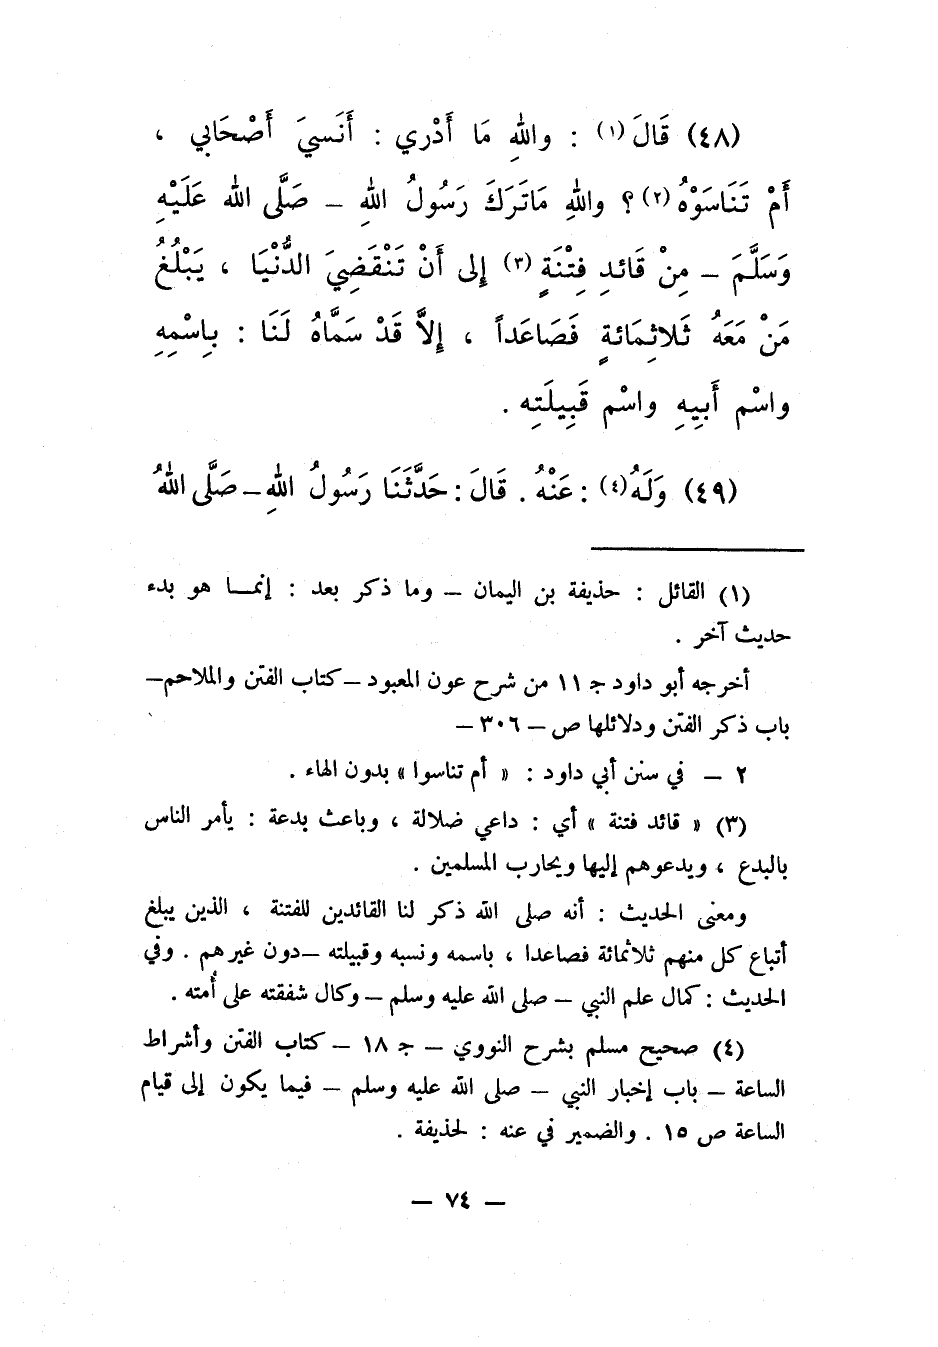 (٤٨) قَالَ (١) : واللهِ مَا أَدْرِي : أَنَسِيَ أَصْحَابي ،
أَمْ تَنَاسَوْهُ (٢) ؟ واللهِ مَاتَرَكَ رَسُولُ اللهِ – صَلَّى اللهُ عَلَيْهِ
وَسَلَّمَ – مِنْ قَائدِ فِتْنَةٍ (٣) إلى أَنْ تَنْقَضِيَ الدُّنْيَا ، يَبْلُغُ
مَنْ مَعَهُ ثَلاثِمَائةٍ فَصَاعَداً ، إلاَّ قَدْ سَمَّاهُ لَنَا : بِاسْمِهِ
واسْمِ أَبِيهِ واسْمِ قَبِيلَتِه .
(٤٩) وَلَهُ (٤) : عَنْهُ . قَالَ : حَدَّثَنَا رَسُولُ اللهِ – صَلَّى اللهُ
(١) القائل : حذيفة بن اليمان – وما ذكر بعد : إنمـا هو بدء
حديث آخر .
أخرجه أبو داود ج ١١ من شرح عون المعبود – كتاب الفتن والملاحم –
باب ذكر الفتن ودلائلها ص – ٣٠٦ –
٢ – في سنن أبي داود : « أم تناسوا » بدون الهاء .
(٣) « قائد فتنة » أي : داعي ضلالة ، وباعث بدعة : يأمر الناس
بالبدع ، ويدعوهم إليها ويحارب المسلمين .
ومعنى الحديث : أنه صلى الله ذكر لنا القائدين للفتنة ، الذين يبلغ
أتباع كل منهم ثلاثمائة فصاعدا ، باسمه ونسبه وقبيلته – دون غيرهم . وفي
الحديث : كمال علم النبي – صلى الله عليه وسلم – وكال شفقته على أُمته .
(٤) صحيح مسلم بشرح النووي – ج ١٨ – كتاب الفتن وأشراط
الساعة – باب إخبار النبي – صلى الله عليه وسلم – فيما يكون إلى قيام
الساعة ص ١٥ . والضمير في عنه : لحذيفة .
– ٧٤ –